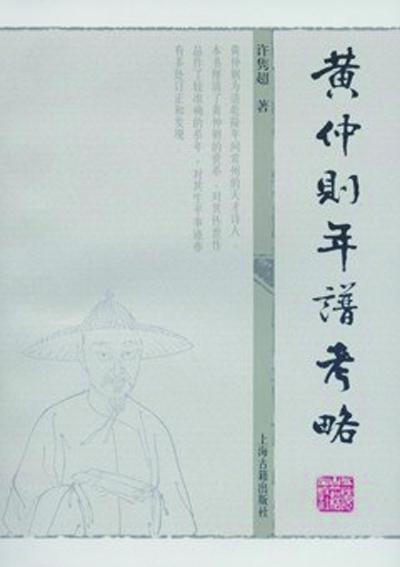 黄仲則年譜考略
许隽超 著
黄仲则为清乾隆年间常州的天才诗人。
本书厘清了黄仲则的世系，对其传世作
品作了较准确的系年，对其生平事迹亦
有多处订正和发现
上海古籍出版社